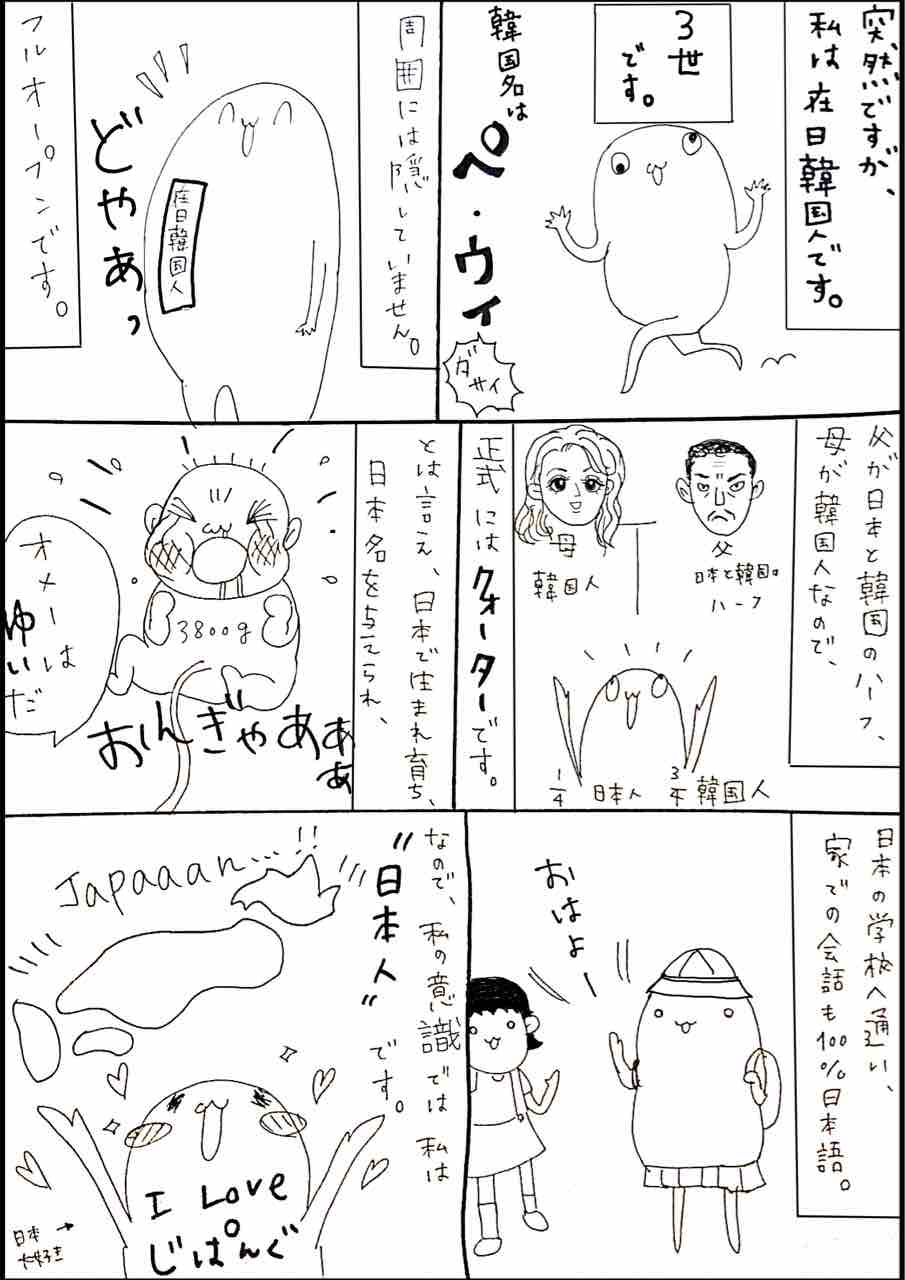 突然ですが、
私は在日韓国人です。
3世
です。
韓国名は
ペ・ウィ
ダサイ
周囲には隠していません。
在日韓国人
どやあっ
フルオープンです。
父が日本と韓国のハーフ、
母が韓国人なので、
父
日本と韓国の
ハーフ
母
韓国人
1/4 日本人
3/4 韓国人
正式にはクォーターです。
とは言え、日本で生まれ育ち、
日本名を与てられ、
3800g
オメーは
ゆい
だ
おんぎゃあぁぁ
日本の学校へ通い、
家での会話も100%日本語。
おはよー
なので、私の意識では私は
"日本人"
です。
Japaaan...!!
I Love
じぱんぐ
日本
大好き